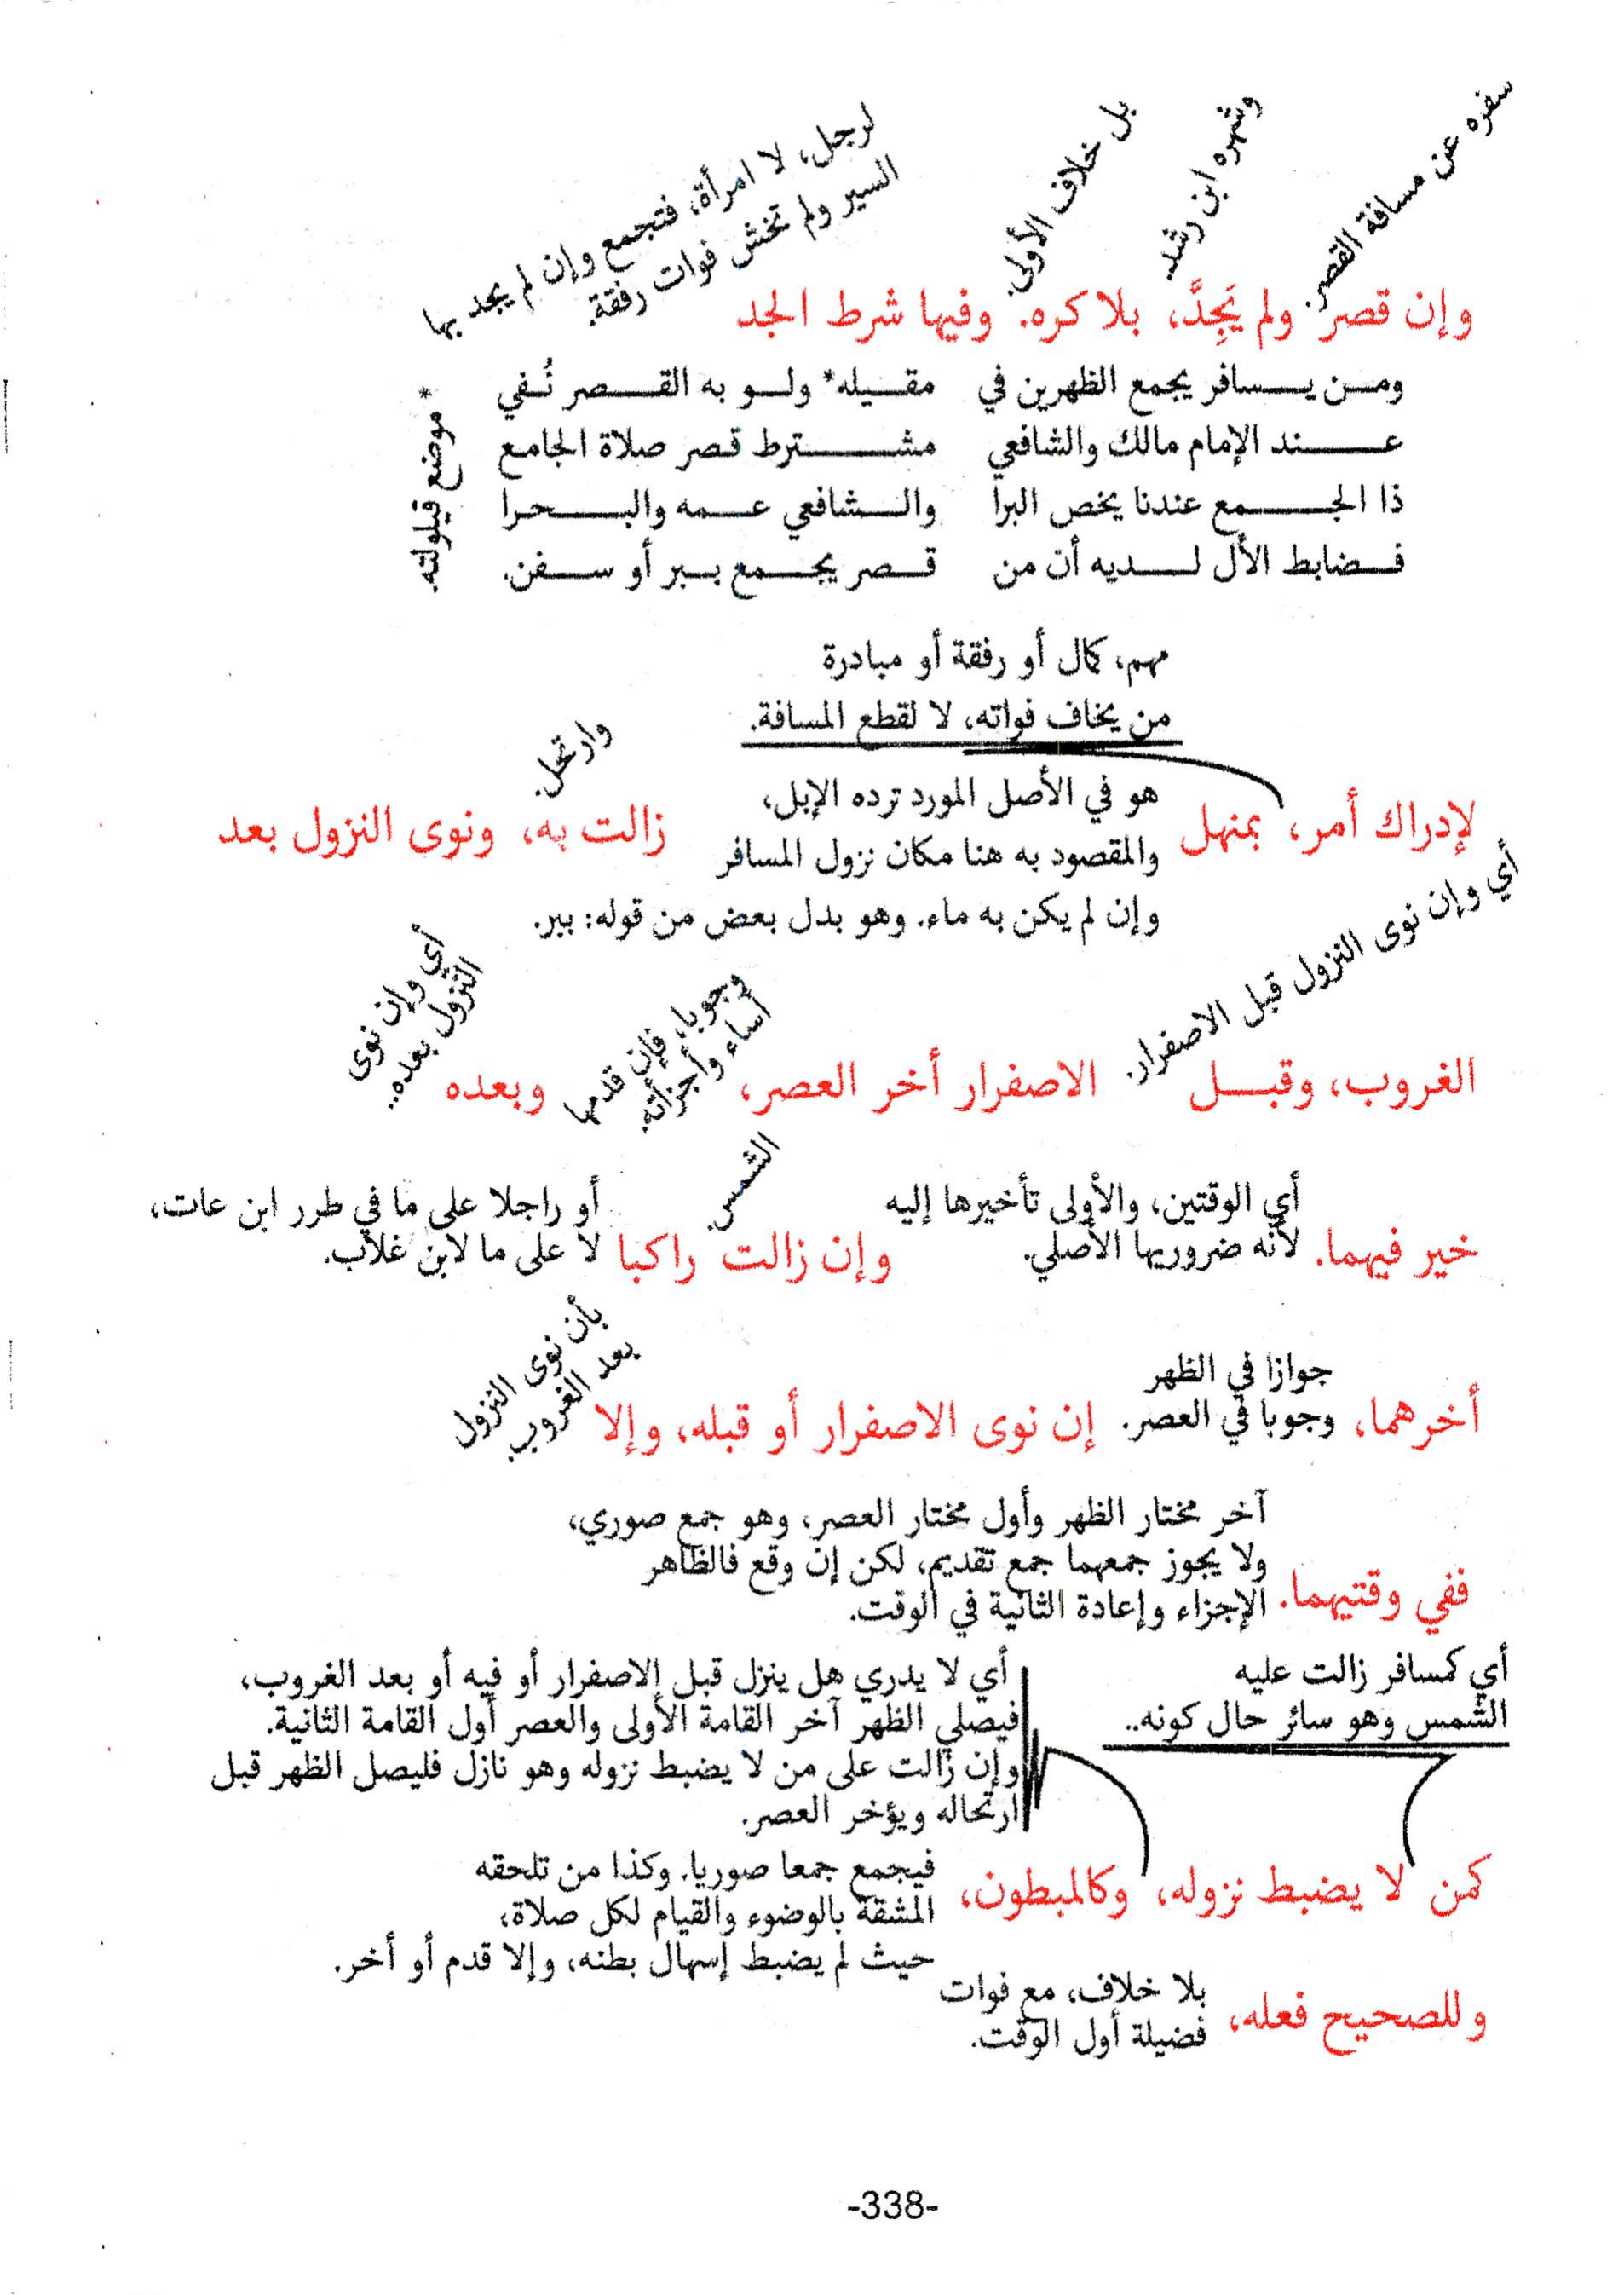 سفره عن مسافة القصر.
وشهره ابن رشد.
بل خلاف الأولى.
لرجل، لا امرأة، فتجمع وإن لم يجد بها
السير ولم تخش فوات رفقة.
وإن قصر ولم يَجِدَّ، بلا كره. وفيها شرط الجد
ومن يسافر يجمع الظهرين في مقيله* ولو به القصر نُفي
عند الإمام مالك والشافعي مشترط قصر صلاة الجامع
ذا الجمع عندنا يخص البرا والشافعي عمه والبحرا
فضابط الأل لديه أن من قصر يجمع ببر أو سفن.
* موضع قيلولته.
مهم، كمال أو رفقة أو مبادرة
من يخاف فواته، لا لقطع المسافة.
وارتحل.
لإدراك أمر، بمنهل
هو في الأصل المورد ترده الإبل،
والمقصود به هنا مكان نزول المسافر
وإن لم يكن به ماء. وهو بدل بعض من قوله: ببر.
زالت به، ونوى النزول بعد
أي وإن نوى النزول قبل الاصفرار.
وجوبا، فإن قدمها
أساء وأجزأته.
أي وإن نوى
النزول بعده..
الغروب، وقبل الاصفرار أخر العصر، وبعده
خير فيهما.
أي الوقتين، والأولى تأخيرها إليه
لأنه ضروريها الأصلي.
الشمس.
وإن زالت راكبا
أو راجلا على ما في طرر ابن عات،
لا على ما لابن غلاب.
أخرهما،
جوازا في الظهر
وجوبا في العصر.
إن نوى الاصفرار أو قبله، وإلا
بأن نوى النزول
بعد الغروب.
ففي وقتيهما.
آخر مختار الظهر وأول مختار العصر، وهو جمع صوري،
ولا يجوز جمعهما جمع تقديم، لكن إن وقع فالظاهر
الإجزاء وإعادة الثانية في الوقت.
أي كمسافر زالت عليه
الشمس وهو سائر حال كونه..
أي لا يدري هل ينزل قبل الاصفرار أو فيه أو بعد الغروب،
فيصلي الظهر آخر القامة الأولى والعصر أول القامة الثانية.
وإن زالت على من لا يضبط نزوله وهو نازل فليصل الظهر قبل
ارتحاله ويؤخر العصر.
كمن لا يضبط نزوله، وكالمبطون،
فيجمع جمعا صوريا. وكذا من تلحقه
المشقة بالوضوء والقيام لكل صلاة،
حيث لم يضبط إسهال بطنه، وإلا قدم أو أخر.
وللصحيح فعله،
بلا خلاف، مع فوات
فضيلة أول الوقت.
-338-